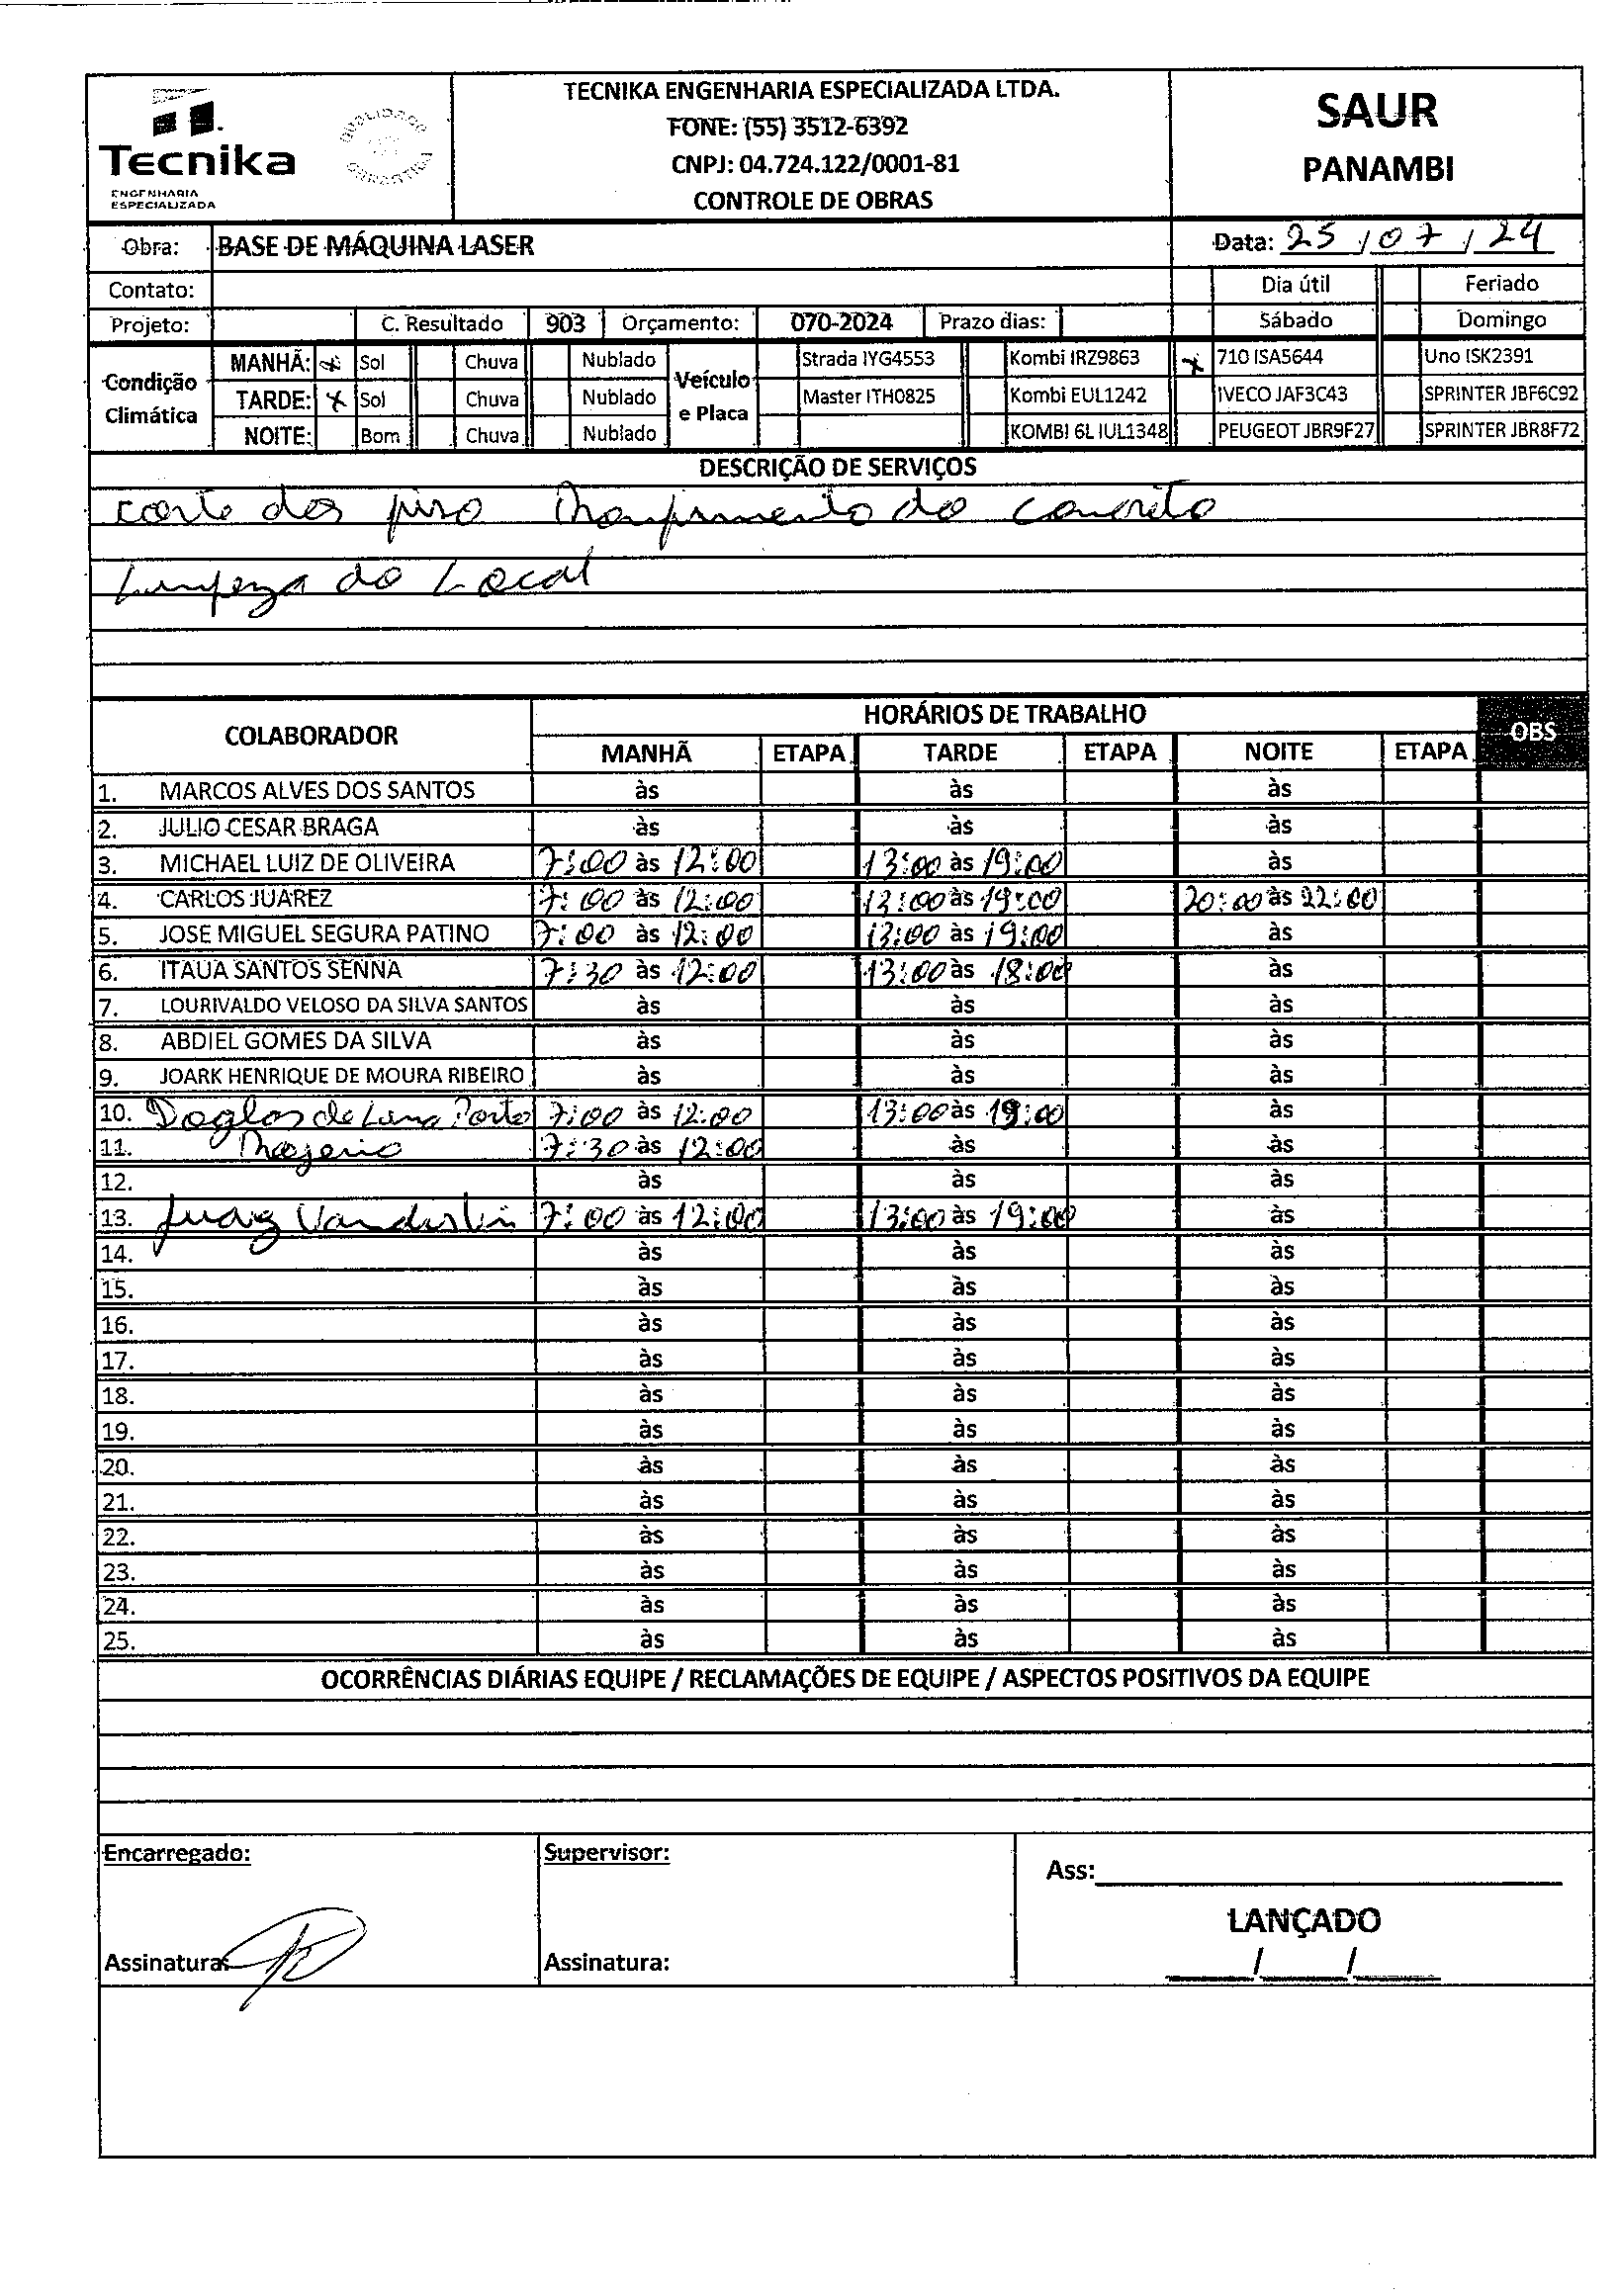 Tecnika
ENGENHARIA
ESPECIALIZADA
QUALIDADE
GARANTIDA
TECNIKA ENGENHARIA ESPECIALIZADA LTDA.
FONE: (55) 3512-6392
CNPJ: 04.724.122/0001-81
CONTROLE DE OBRAS
SAUR
PANAMBI
Obra: BASE DE MÁQUINA LASER
Data: 25/07/24
Contato:
Dia útil Feriado
Projeto: C. Resultado 903 Orçamento: 070-2024 Prazo dias: Sábado Domingo
Condição Climática
MANHÃ: x Sol Chuva Nublado
TARDE: x Sol Chuva Nublado
NOITE: Bom Chuva Nublado
Veículo e Placa
Strada IYG4553 Kombi IRZ9863 x 710 ISA5644 Uno ISK2391
Master ITH0825 Kombi EUL1242 IVECO JAF3C43 SPRINTER JBF6C92
KOMBI 6L IUL1348 PEUGEOT JBR9F27 SPRINTER JBR8F72
DESCRIÇÃO DE SERVIÇOS
corte dos piso do concreto
Limpeza do Local
COLABORADOR HORÁRIOS DE TRABALHO OBS
MANHÃ ETAPA TARDE ETAPA NOITE ETAPA
1. MARCOS ALVES DOS SANTOS às às às
2. JULIO CESAR BRAGA às às às
3. MICHAEL LUIZ DE OLIVEIRA 7:00 às 12:00 13:00 às 19:00 às
4. CARLOS JUAREZ 7:00 às 12:00 13:00 às 19:00 20:00 às 22:00
5. JOSE MIGUEL SEGURA PATINO 7:00 às 12:00 13:00 às 19:00 às
6. ITAUA SANTOS SENNA 7:30 às 12:00 13:00 às 18:00 às
7. LOURIVALDO VELOSO DA SILVA SANTOS às às às
8. ABDIEL GOMES DA SILVA às às às
9. JOARK HENRIQUE DE MOURA RIBEIRO às às às
10. Doglas de Lima Porto 7:00 às 12:00 13:00 às 19:00 às
11. Rogerio 7:30 às 12:00 às às
12. às às às
13. Vanderlin 7:00 às 12:00 13:00 às 19:00 às
14. às às às
15. às às às
16. às às às
17. às às às
18. às às às
19. às às às
20. às às às
21. às às às
22. às às às
23. às às às
24. às às às
25. às às às
OCORRÊNCIAS DIÁRIAS EQUIPE / RECLAMAÇÕES DE EQUIPE / ASPECTOS POSITIVOS DA EQUIPE
Encarregado: Supervisor:
Ass:
LANÇADO
Assinatura: Assinatura: / /